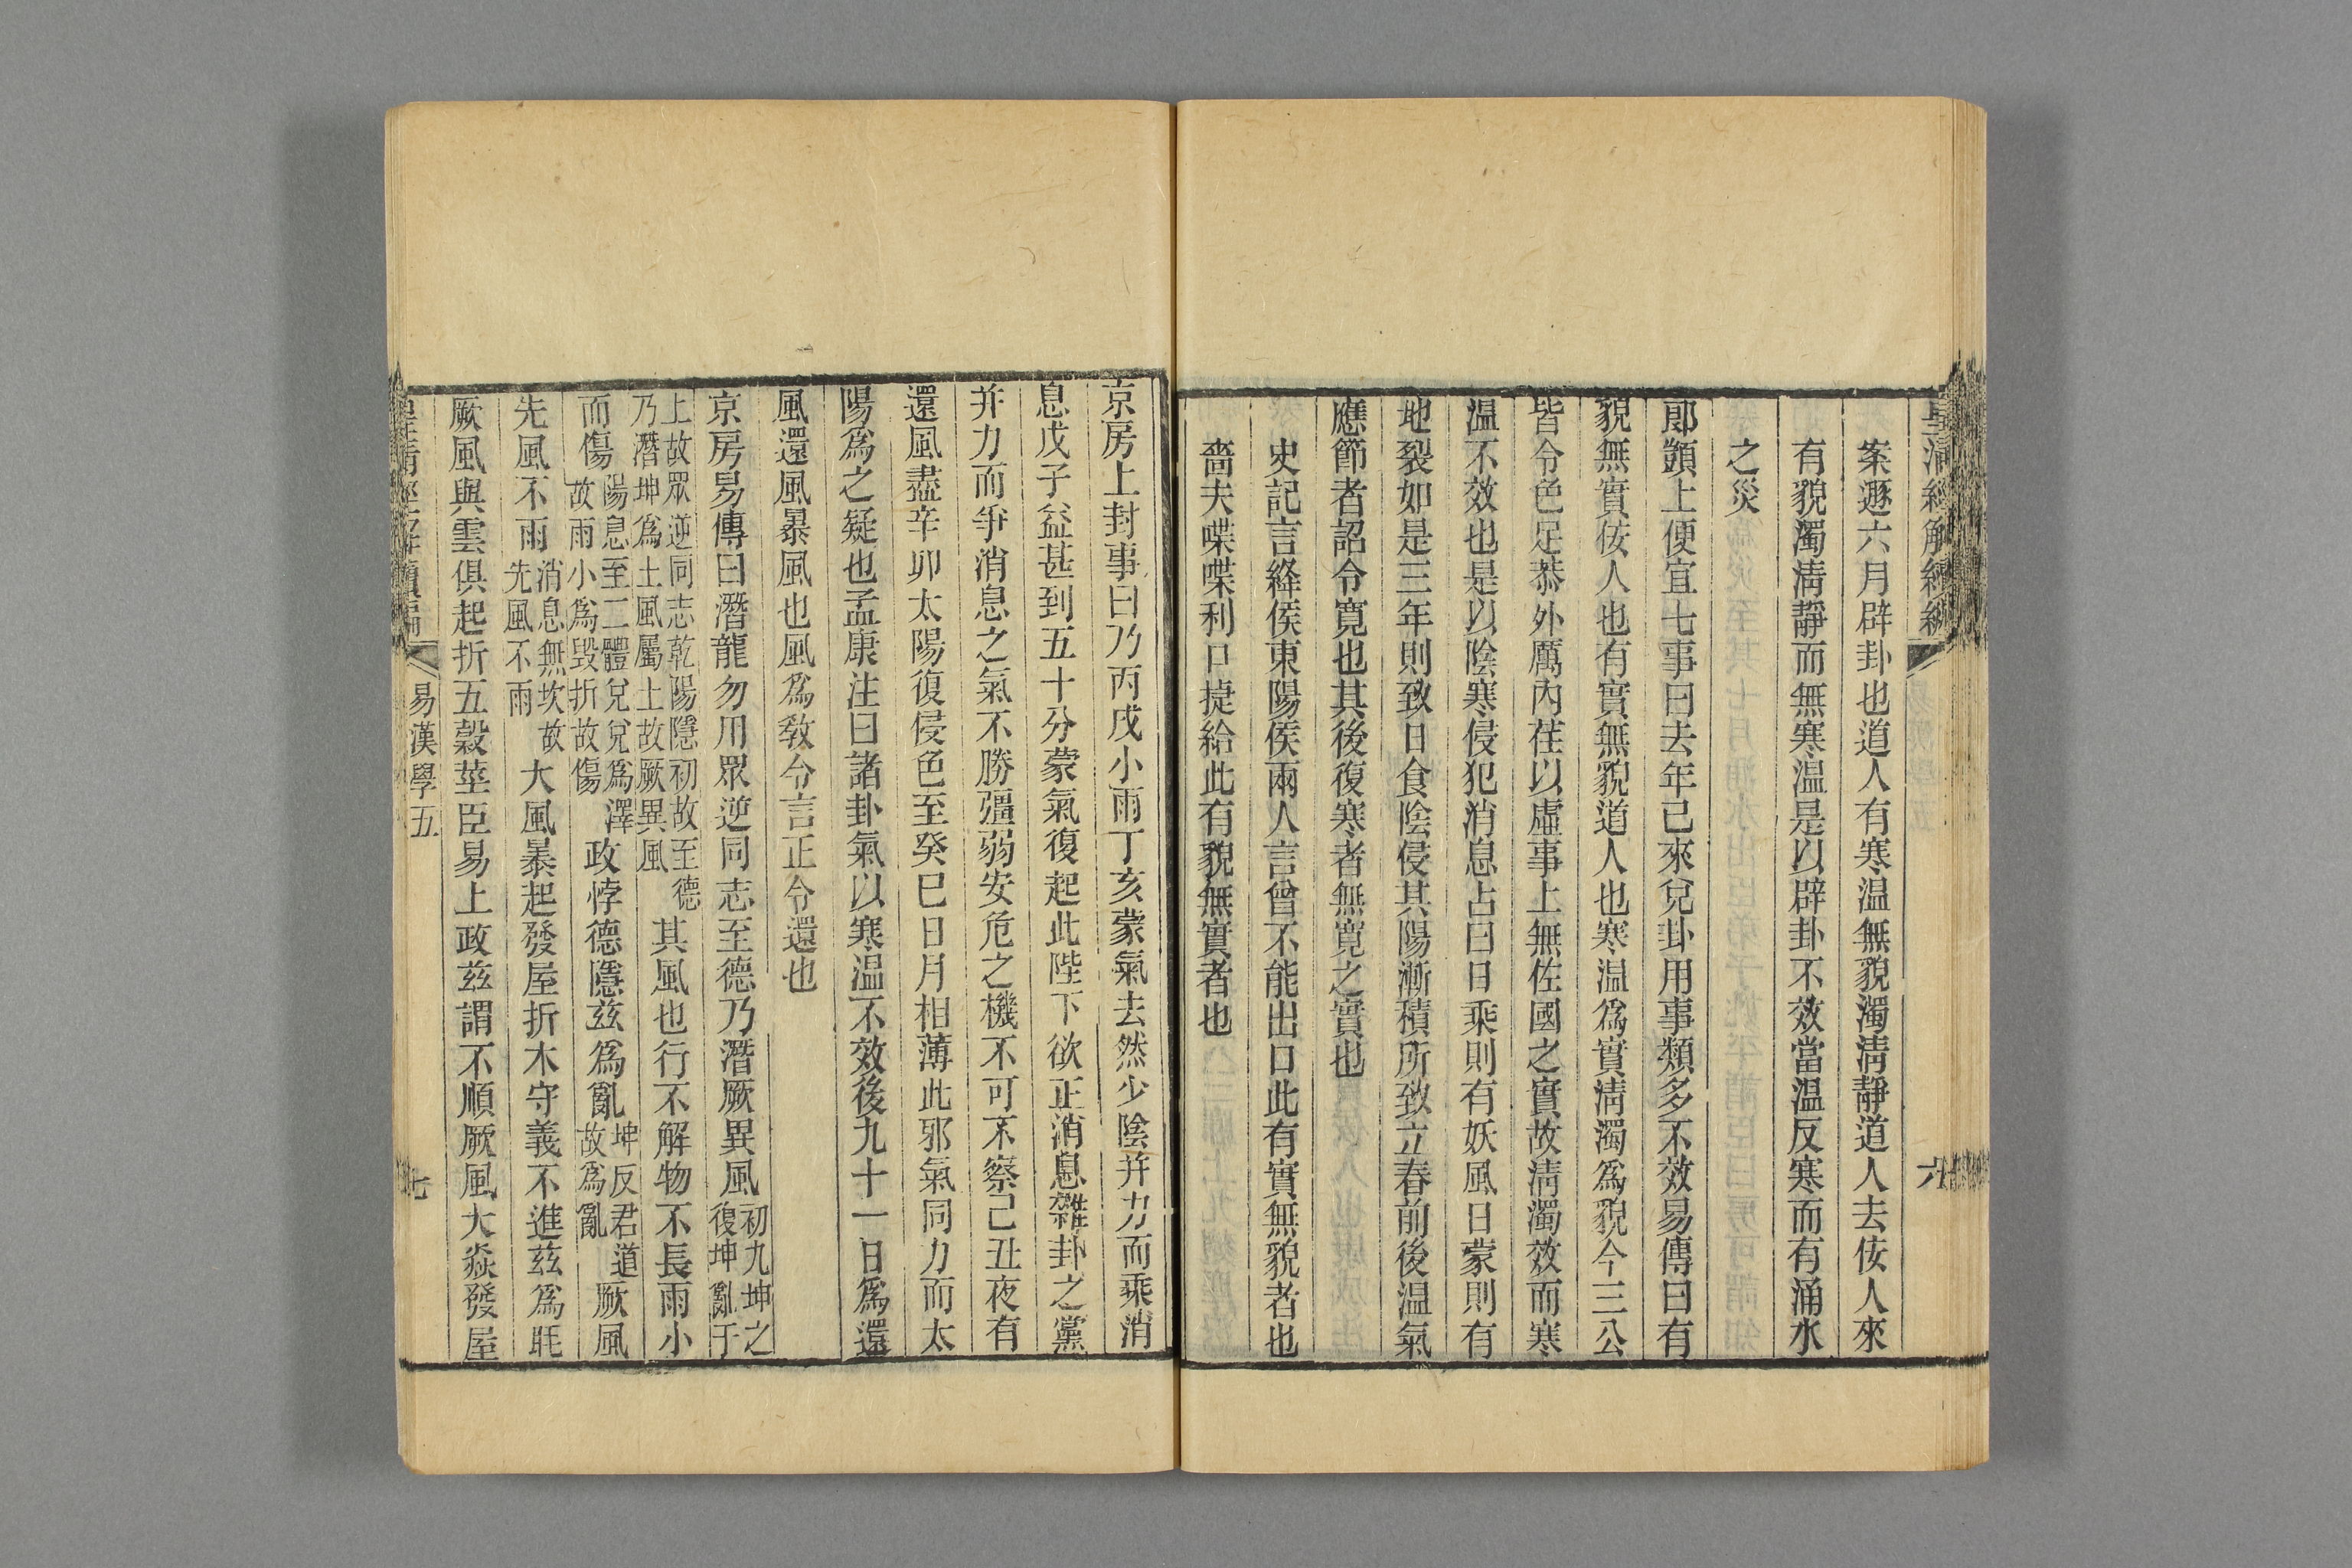 皇清經解續編
六
案遯六月辟卦也道人有寒温無貌濁淸靜道人去佞人來
有貌濁淸靜而無寒温是以辟卦不效當温反寒而有涌水
之災
郞顗上便宜七事曰去年已來兌卦用事類多不效易傳曰有
貌無實佞人也有實無貌道人也寒温爲實淸濁爲貌今三公
皆令色足恭外厲內荏以虛事上無佐國之實故淸濁效而寒
温不效也是以陰寒侵犯消息占曰日乘則有妖風日蒙則有
地裂如是三年則致日食陰侵其陽漸積所致立春前後温氣
應節者詔令寬也其後復寒者無寬之實也
史記言絳侯東陽侯兩人言曾不能出口此有實無貌者也
嗇夫喋喋利口捷給此有貌無實者也
京房上封事曰乃丙戌小雨丁亥蒙氣去然少陰并力而乘消
息戊子益甚到五十分蒙氣復起此陛下欲正消息雜卦之黨
并力而爭消息之氣不勝彊弱安危之機不可不察己丑夜有
還風盡辛卯太陽復侵色至癸巳日月相薄此邪氣同力而太
陽爲之疑也孟康注曰諸卦氣以寒温不效後九十一日爲還
風還風暴風也風爲敎令言正令還也
京房易傳曰潛龍勿用眾逆同志至德乃潛厥異風初九坤之復坤亂于
上故眾逆同志乾陽隱初故至德乃潛坤爲土風屬土故厥異風其風也行不解物不長雨小
而傷陽息至二體兌兌爲澤故雨小爲毀折故傷政悖德隱茲爲亂坤反君道故爲亂厥風
先風不雨消息無坎故先風不雨大風暴起發屋折木守義不進茲爲眊
厥風與雲俱起折五穀莖臣易上政茲謂不順厥風大焱發屋
皇清經解續編
易漢學五
七